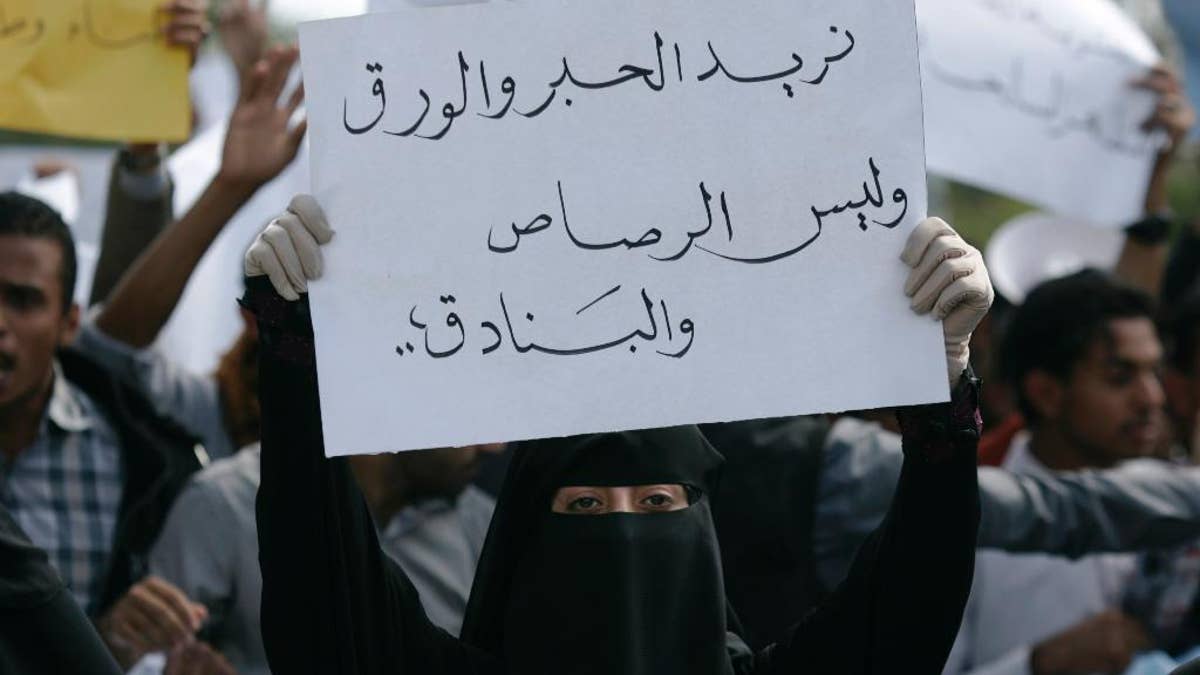 نريد الحبر والورق
وليس الرصاص
والبنادق؛..